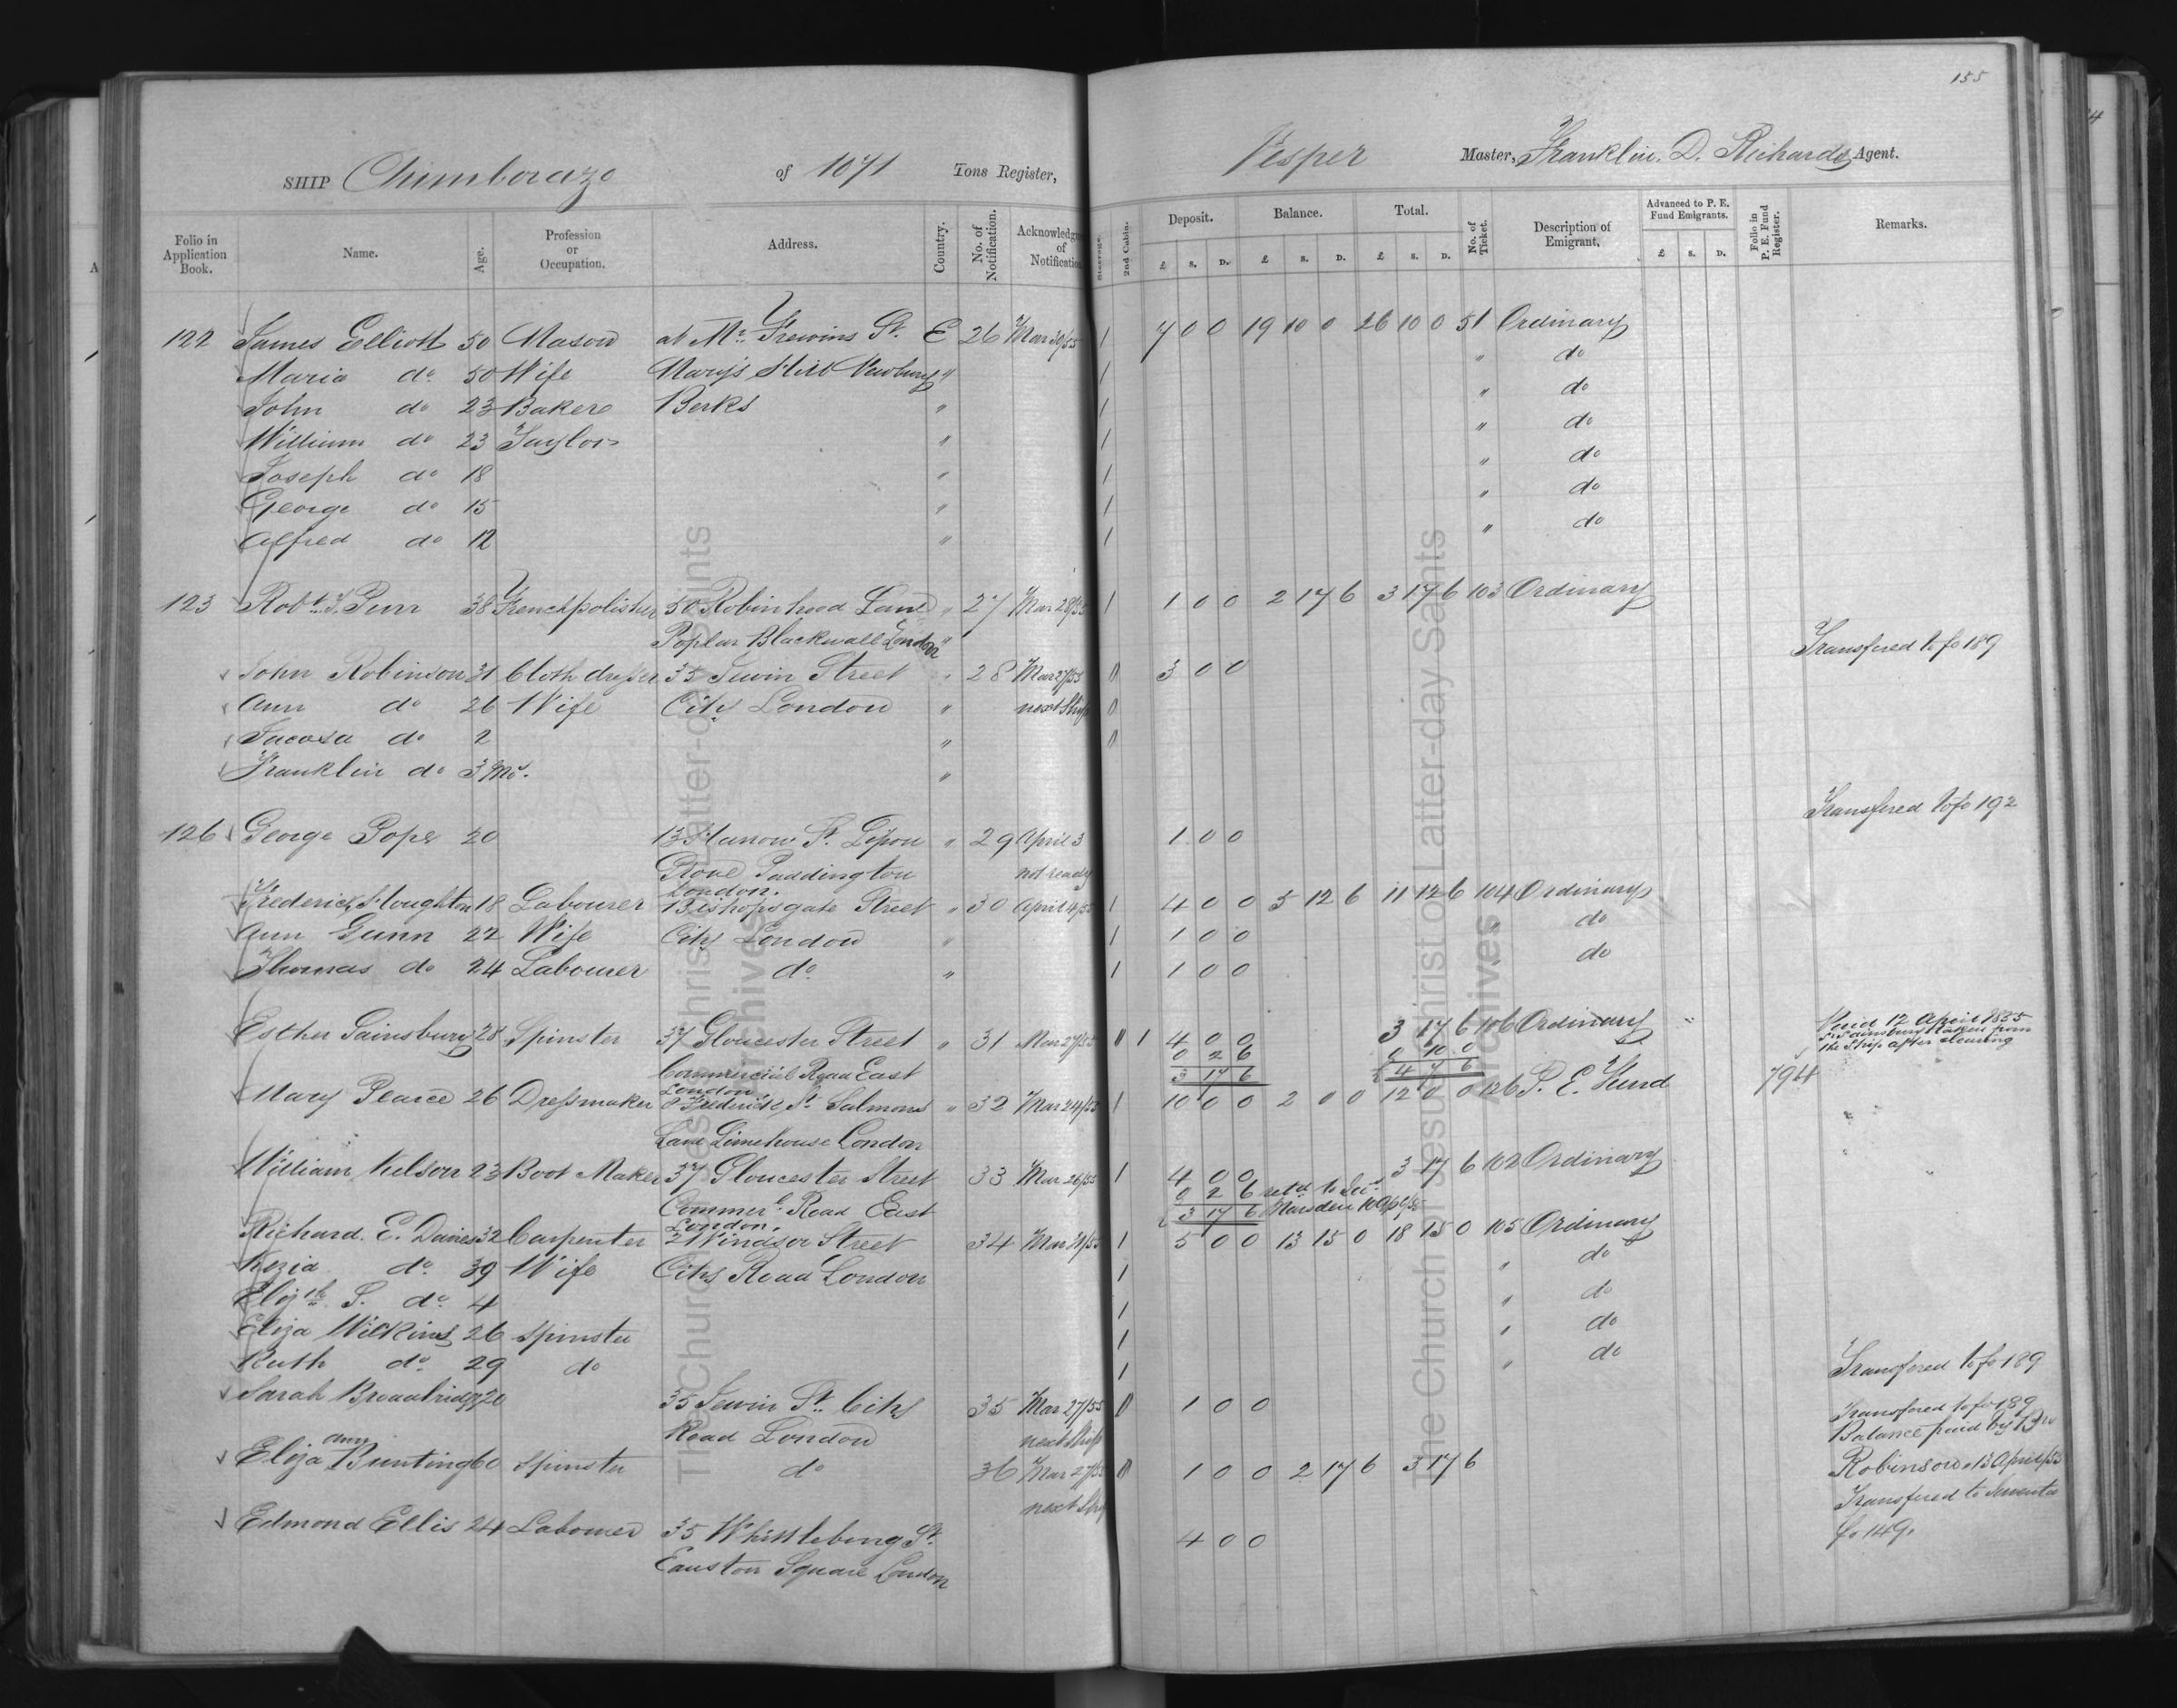 155
SHIP Chimborazo of 1071 Tons Register, Vesper Master, Franklin. D. Richards Agent.
Folio in Application Book. Name. Age. Profession or Occupation. Address. Country. No. of Notification. Steerage. 2nd Cabin. Deposit. Balance. Total. No. of Ticket. Description of Emigrant. Advanced to P. E. Fund Emigrants. Folio in P. E. Fund Register. Remarks.
£ S. D. £ S. D. £ S. D. £ S. D.
122 James Elliott 50 Mason at Mr. Frewins St. E 26 Mar 30/55 1 7 0 0 19 10 0 26 10 0 51 Ordinary
Maria do 50 Wife Marys Hill Newbury " 1 " do
John do 23 Baker Berks " 1 " do
William do 23 Taylor " 1 " do
Joseph do 18 " 1 " do
George do 15 " 1 " do
Alfred do 12 " 1 " do
123 Robt. J. Purr 38 Frenchpolisher 50 Robinhood Lane " 27 Mar 28/55 1 1 0 0 2 17 6 3 17 6 103 Ordinary
Poplar Blackwall London " Transfered to fo 189
John Robinson 31 Cloth dresser 35 Jewin Street " 28 Mar 27/55 3 0 0
Ann do 26 Wife City London " next Ship
do 2 "
Franklin do 3 Mo. "
Transfered to fo 192
126 George Pope 20 13 St. " 29 April 3 1 0 0
Grove Paddington not ready
London.
Frederick Houghton 18 Labourer Bishopsgate Street " 30 April 4/55 1 4 0 0 5 12 6 11 12 6 104 Ordinary
Ann Gunn 22 Wife City London " 1 1 0 0 " do
Thomas do 24 Labourer do " 1 1 0 0 " do
Esther Sainsbury 28 Spinster 37 Gloucester Street " 31 Mar 27/55 1 4 0 0 3 17 6 106 Ordinary Paid 12 April 1855
0 2 6 0 10 0 Sr Sainsbury taken from
3 17 6 4 7 6 the Ship after clearing
Commercial Road East
London
Mary Pearce 26 Dressmaker 8 Frederick St. Salmons " 32 Mar 24/55 1 10 0 0 2 0 0 12 0 0 126 P. E. Fund 794
Lane Limehouse London
William Nelson 23 Boot Maker 37 Gloucester Street 33 Mar 26/55 1 4 0 0 3 17 6 102 Ordinary
0 2 6 retd to
3 17 6 Marsden
Commerl. Road East
London.
Richard. E. Davies 32 Carpenter 2 Windsor Street 34 Mar 31/55 1 5 0 0 13 15 0 18 15 0 105 Ordinary
Kezia do 39 Wife City Road London 1 " do
Elizth S. do 4 1 " do
Eliza Wilkins 26 Spinster 1 " do
Ruth do 29 do 1 " do
Transfered to fo 189
Sarah Broadbridge 20 35 Jewin St. City 35 Mar 27/55 1 0 0 Transfered to fo 189
Road London next Ship Balance paid by Bro
Eliza Ann Bunting 60 Spinster do 36 Mar 27/55 1 0 0 2 17 6 3 17 6 Robinson. 13 April/55
next Ship Transfered to Juventa
Edmond Ellis 24 Labourer 35 Whittlebury St. 4 0 0 fo 149.
Eauston Square London
The Church of Jesus Christ of Latter-day Saints
Archives
The Church of Jesus Christ of Latter-day Saints
Archives